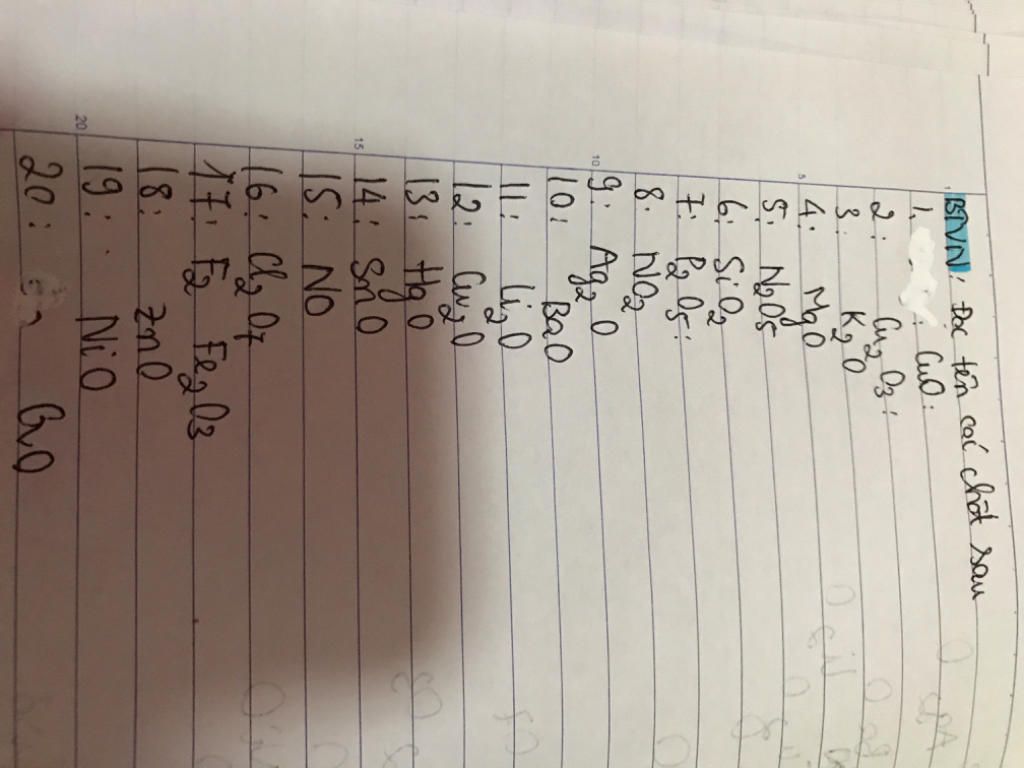 BTVN: Đọc tên các chất sau
1. : CuO:
2: Cu2O3:
3: K2O
4. MgO
5: N2O5
6: SiO2
7: P2O5:
8. NO2
9: Ag2O
10: BaO
11: Li2O
12: Cu2O
13: HgO
14: SnO
15: NO
16: Cl2O7
17: F2 Fe2O3
18: ZnO
19: NiO
20: CuO
1
5
10
15
20